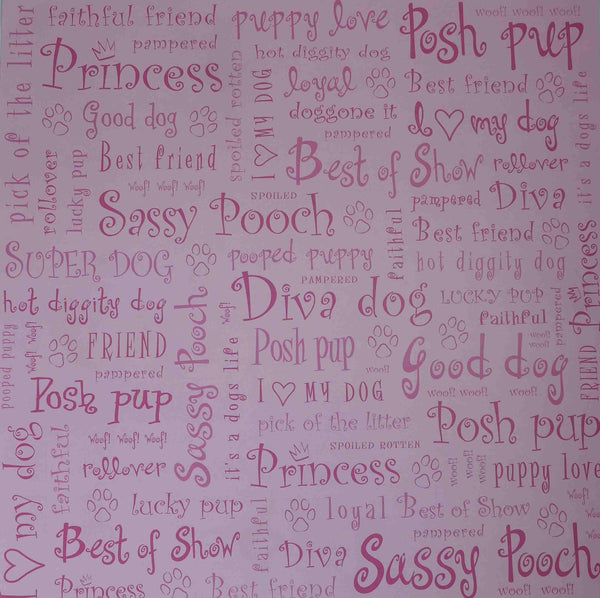 pick of the litter
faithful friend
pampered
Princess
puppy love
hot diggity dog
woof! woof! woof!
Posh pup
spoiled rotten
I ♡ MY DOG
loyal
doggone it
pampered
Best friend
it's a dogs life
rollover
lucky pup
Good dog
Best friend
Woof! Woof! Woof!
I ♡ my dog
Best of Show
rollover
Sassy Pooch
SPOILED
faithful
pampered
Diva
Best friend
SUPER DOG
pooped puppy
PAMPERED
hot diggity dog
Princess
hot diggity dog
Sassy Pooch
Woof!
Diva dog
LUCKY PUP
faithful
pampered
MY
FRIEND
pooped puppy
Woof! Woof!
FRIEND
pampered
it's a dogs life
Posh pup
Good dog
woof!
woof! woof! woof!
Posh pup
I ♡ MY DOG
pick of the litter
SPOILED ROTTEN
Posh pup
I ♡ my dog
faithful
Woof! Woof! Woof!
rollover
Princess
woof!
woof! woof!
puppy love
Woof!
lucky pup
faithful
loyal
Best of Show
pampered
Best of Show
Diva
Sassy Pooch
Princess
Best friend
woof! woof! woof!